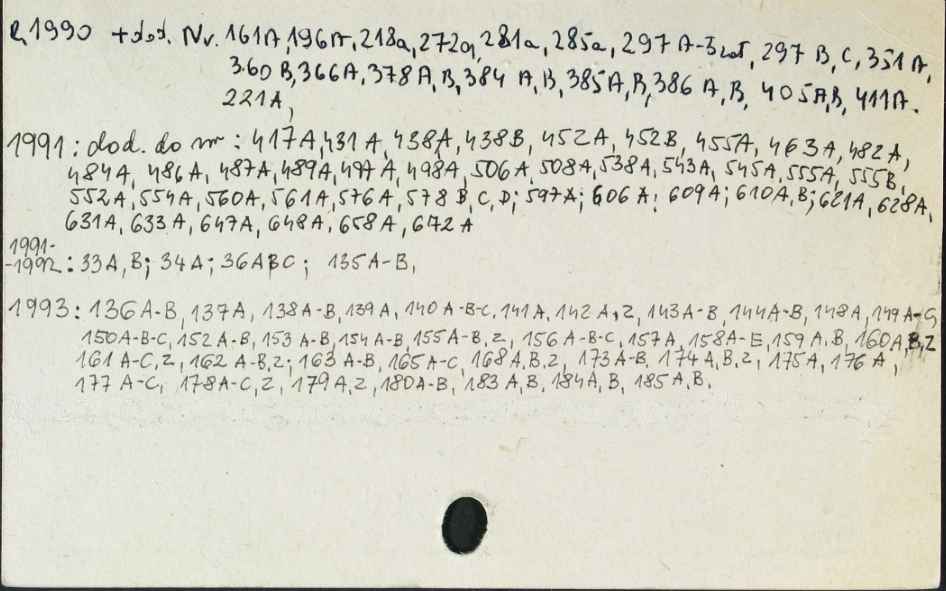 R, 1990 + dod. Nr. 161A, 196A, 218a, 272a, 281a, 285a, 297 A-3 , 297 B, C, 351 A,
360 B, 366A, 378A, B, 384 A, B, 385A, B, 386 A, B, 405A,B, 411A.
221A,
1991: dod. do nr: 417A, 431 A, 438A, 438B, 452A, 452B, 455A, 463A, 482A,
484A, 486A, 487A, 489A, 497 A, 498A, 506A, 508A, 538A, 543A, 545A, 555A, 555B,
552A, 554A, 560A, 561A, 576A, 578 B, C, D; 597A; 606 A; 609A; 610A, B; 621A, 628A,
631A, 633 A, 647A, 648A, 658A, 672A
1991-
-1992: 33A, B; 34A; 36ABC; 135A-B,
1993: 136A-B, 137A, 138A-B, 139A, 140 A-B-C, 141A, 142A, Z, 143A-B, 144A-B, 148A, 149A-C,
150A-B-C, 152A-B, 153 A-B, 154 A-B, 155A-B, Z, 156 A-B-C, 157A, 158A-E, 159 A, B, 160A,B,Z
161 A-C, Z, 162 A-B, Z; 163 A-B, 165A-C, 168A,B,Z, 173A-B, 174 A, B, Z, 175A, 176 A,
177 A-C, 178A-C, Z, 179A,Z, 180A-B, 183 A,B, 184A, B, 185 A, B.